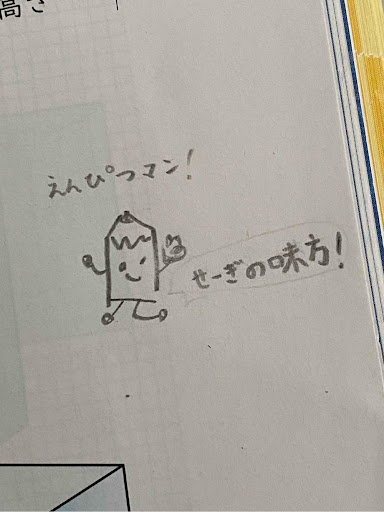 高さ
えんぴつマン!
せーぎの味方!